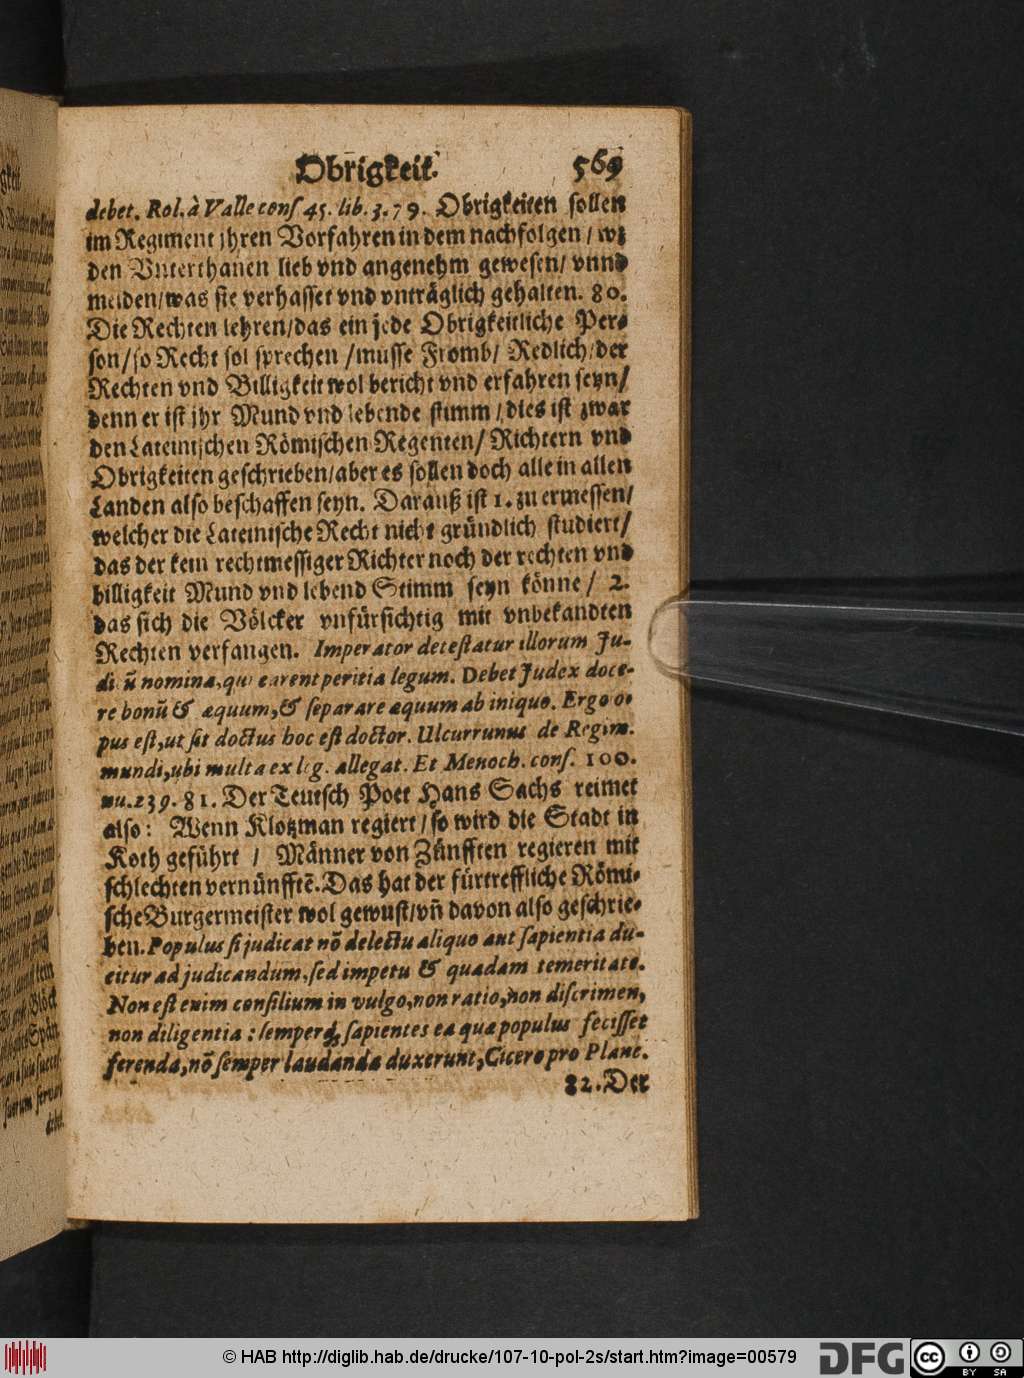 Obrigkeit. 569
debet. Rol. à Valle conſ 45. lib. 3. 79. Obrigkeiten ſollen
im Regiment jhren Vorfahren in dem nachfolgen / wz
den Vnterthanen lieb vnd angenehm geweſen / vnnd
meiden / was ſie verhaſſet vnd vnträglich gehalten. 80.
Die Rechten lehren / das ein jede Obrigkeitliche Per-
ſon / ſo Recht ſol ſprechen / muſſe Fromb / Redlich / der
Rechten vnd Billigkeit wol bericht vnd erfahren ſeyn /
denn er iſt jhr Mund vnd lebende ſtimm / dies iſt zwar
den Lateiniſchen Römiſchen Regenten / Richtern vnd
Obrigkeiten geſchrieben / aber es ſollen doch alle in allen
Landen alſo beſchaffen ſeyn. Darauß iſt 1. zu ermeſſen /
welcher die Lateiniſche Recht nicht gründlich ſtudiert /
das der kein rechtmeſſiger Richter noch der rechten vnd
billigkeit Mund vnd lebend Stimm ſeyn könne / 2.
das ſich die Völcker vnfürſichtig mit vnbekandten
Rechten verfangen. Imperator deteſtatur illorum Ju-
dicũ nomina, qui carent peritia legum. Debet Judex doce-
re bonũ & æquum, & ſeparare æquum ab iniquo. Ergo o-
pus eſt, ut ſit doctus hoc eſt doctor. Ulcurrunus de Regim.
mundi, ubi multa ex leg. allegat. Et Menoch. conſ. 100.
nu. 239. 81. Der Teutſch Poet Hans Sachs reimet
alſo: Wenn Klotzman regiert / ſo wird die Stadt in
Koth geführt / Männer von Zünfften regieren mit
ſchlechten vernünfftẽ. Das hat der fürtreffliche Römi-
ſche Burgermeiſter wol gewuſt / vñ davon alſo geſchrie-
ben. Populus ſi judicat nõ delectu aliquo aut ſapientia du-
citur ad judicandum, ſed impetu & quadam temeritate.
Non eſt enim conſilium in vulgo, non ratio, non diſcrimen,
non diligentia: ſemperq; ſapientes ea quæ populus feciſſet
ferenda, nõ ſemper laudanda duxerunt, Cicero pro Planc.
82. Der
© HAB http://diglib.hab.de/drucke/107-10-pol-2s/start.htm?image=00579
DFG
cc BY SA